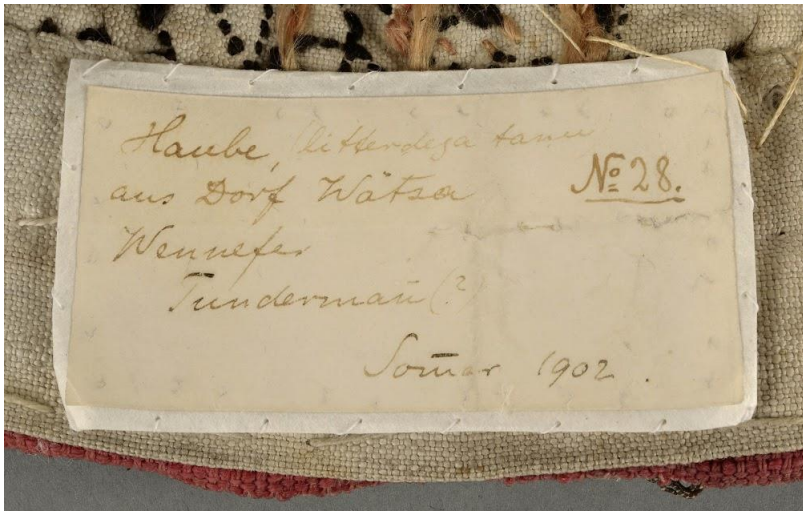 Haube, litterdega tanu
aus Dorf Wätsa No 28.
Wennefer
Tundermañ (?)
Som̄er 1902.